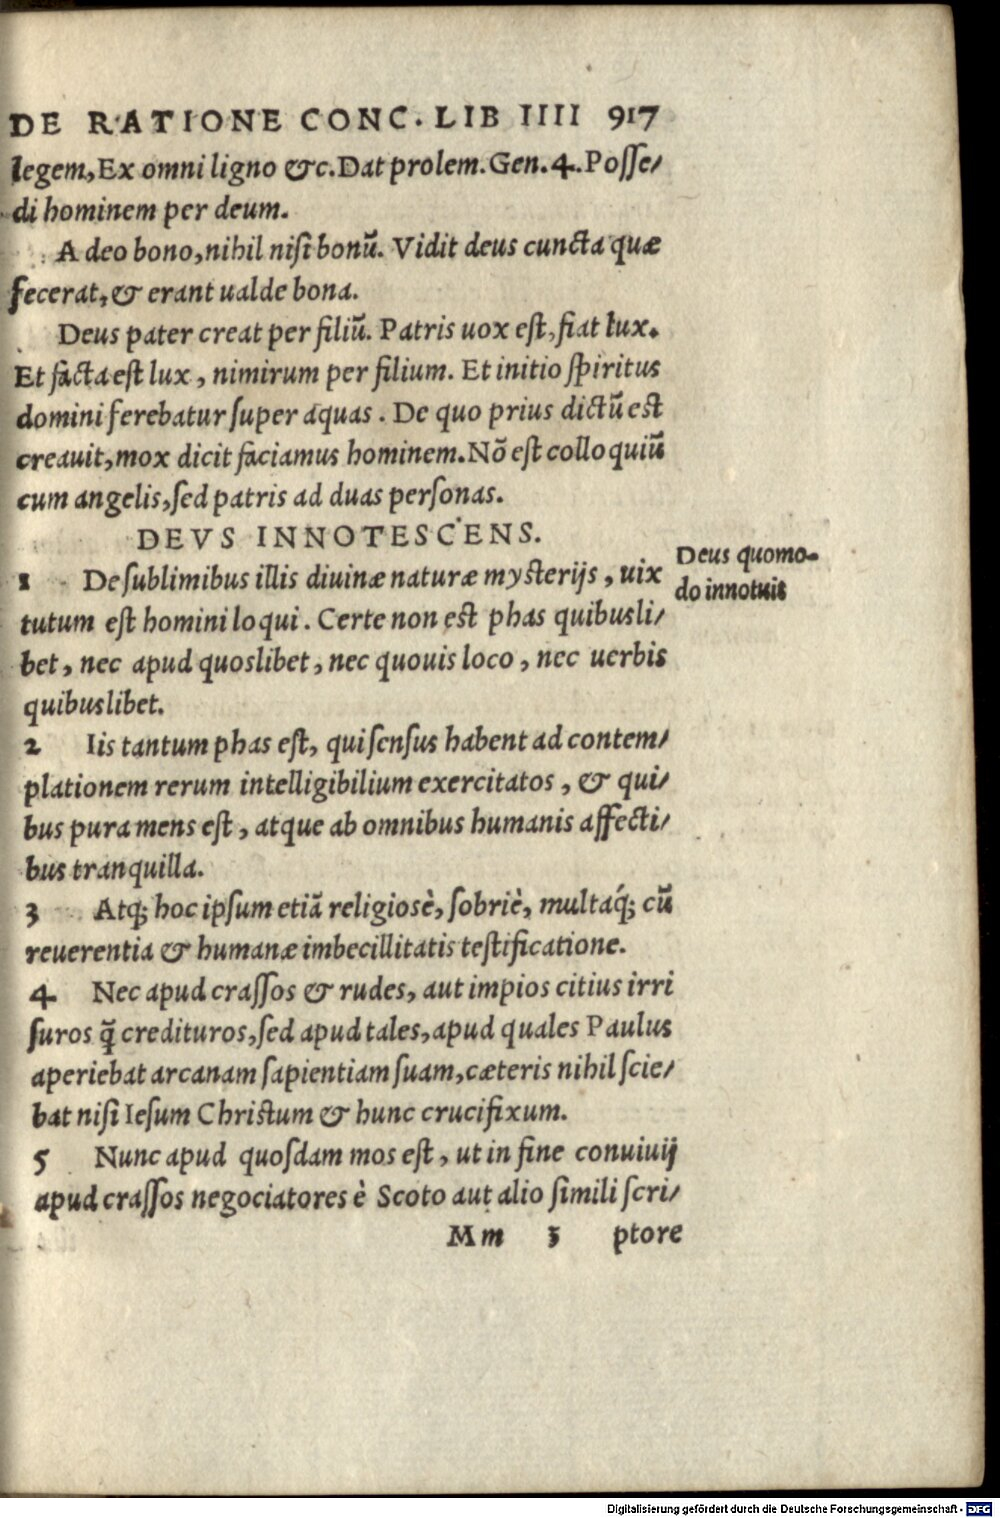 DE RATIONE CONC. LIB IIII 917
legem, Ex omni ligno &c. Dat prolem. Gen. 4. Posse/
di hominem per deum.
A deo bono, nihil nisi bonū. Vidit deus cuncta quæ
fecerat, & erant ualde bona.
Deus pater creat per filiū. Patris uox est, fiat lux.
Et facta est lux, nimirum per filium. Et initio spiritus
domini ferebatur super aquas. De quo prius dictū est
creauit, mox dicit faciamus hominem. Nō est colloquiū
cum angelis, sed patris ad duas personas.
DEVS INNOTESCENS.
Deus quomo-
do innotuit
1 De sublimibus illis diuinæ naturæ mysterijs, uix
tutum est homini loqui. Certe non est phas quibusli/
bet, nec apud quoslibet, nec quouis loco, nec uerbis
quibuslibet.
2 Iis tantum phas est, qui sensus habent ad contem/
plationem rerum intelligibilium exercitatos, & qui/
bus pura mens est, atque ab omnibus humanis affecti/
bus tranquilla.
3 Atq; hoc ipsum etiā religiosè, sobriè, multáq; cū
reuerentia & humanæ imbecillitatis testificatione.
4 Nec apud crassos & rudes, aut impios citius irri
suros q̄ credituros, sed apud tales, apud quales Paulus
aperiebat arcanam sapientiam suam, cæteris nihil scie/
bat nisi Iesum Christum & hunc crucifixum.
5 Nunc apud quosdam mos est, ut in fine conuiuij
apud crassos negociatores è Scoto aut alio simili scri/
Mm 3 ptore
Digitalisierung gefördert durch die Deutsche Forschungsgemeinschaft - DFG